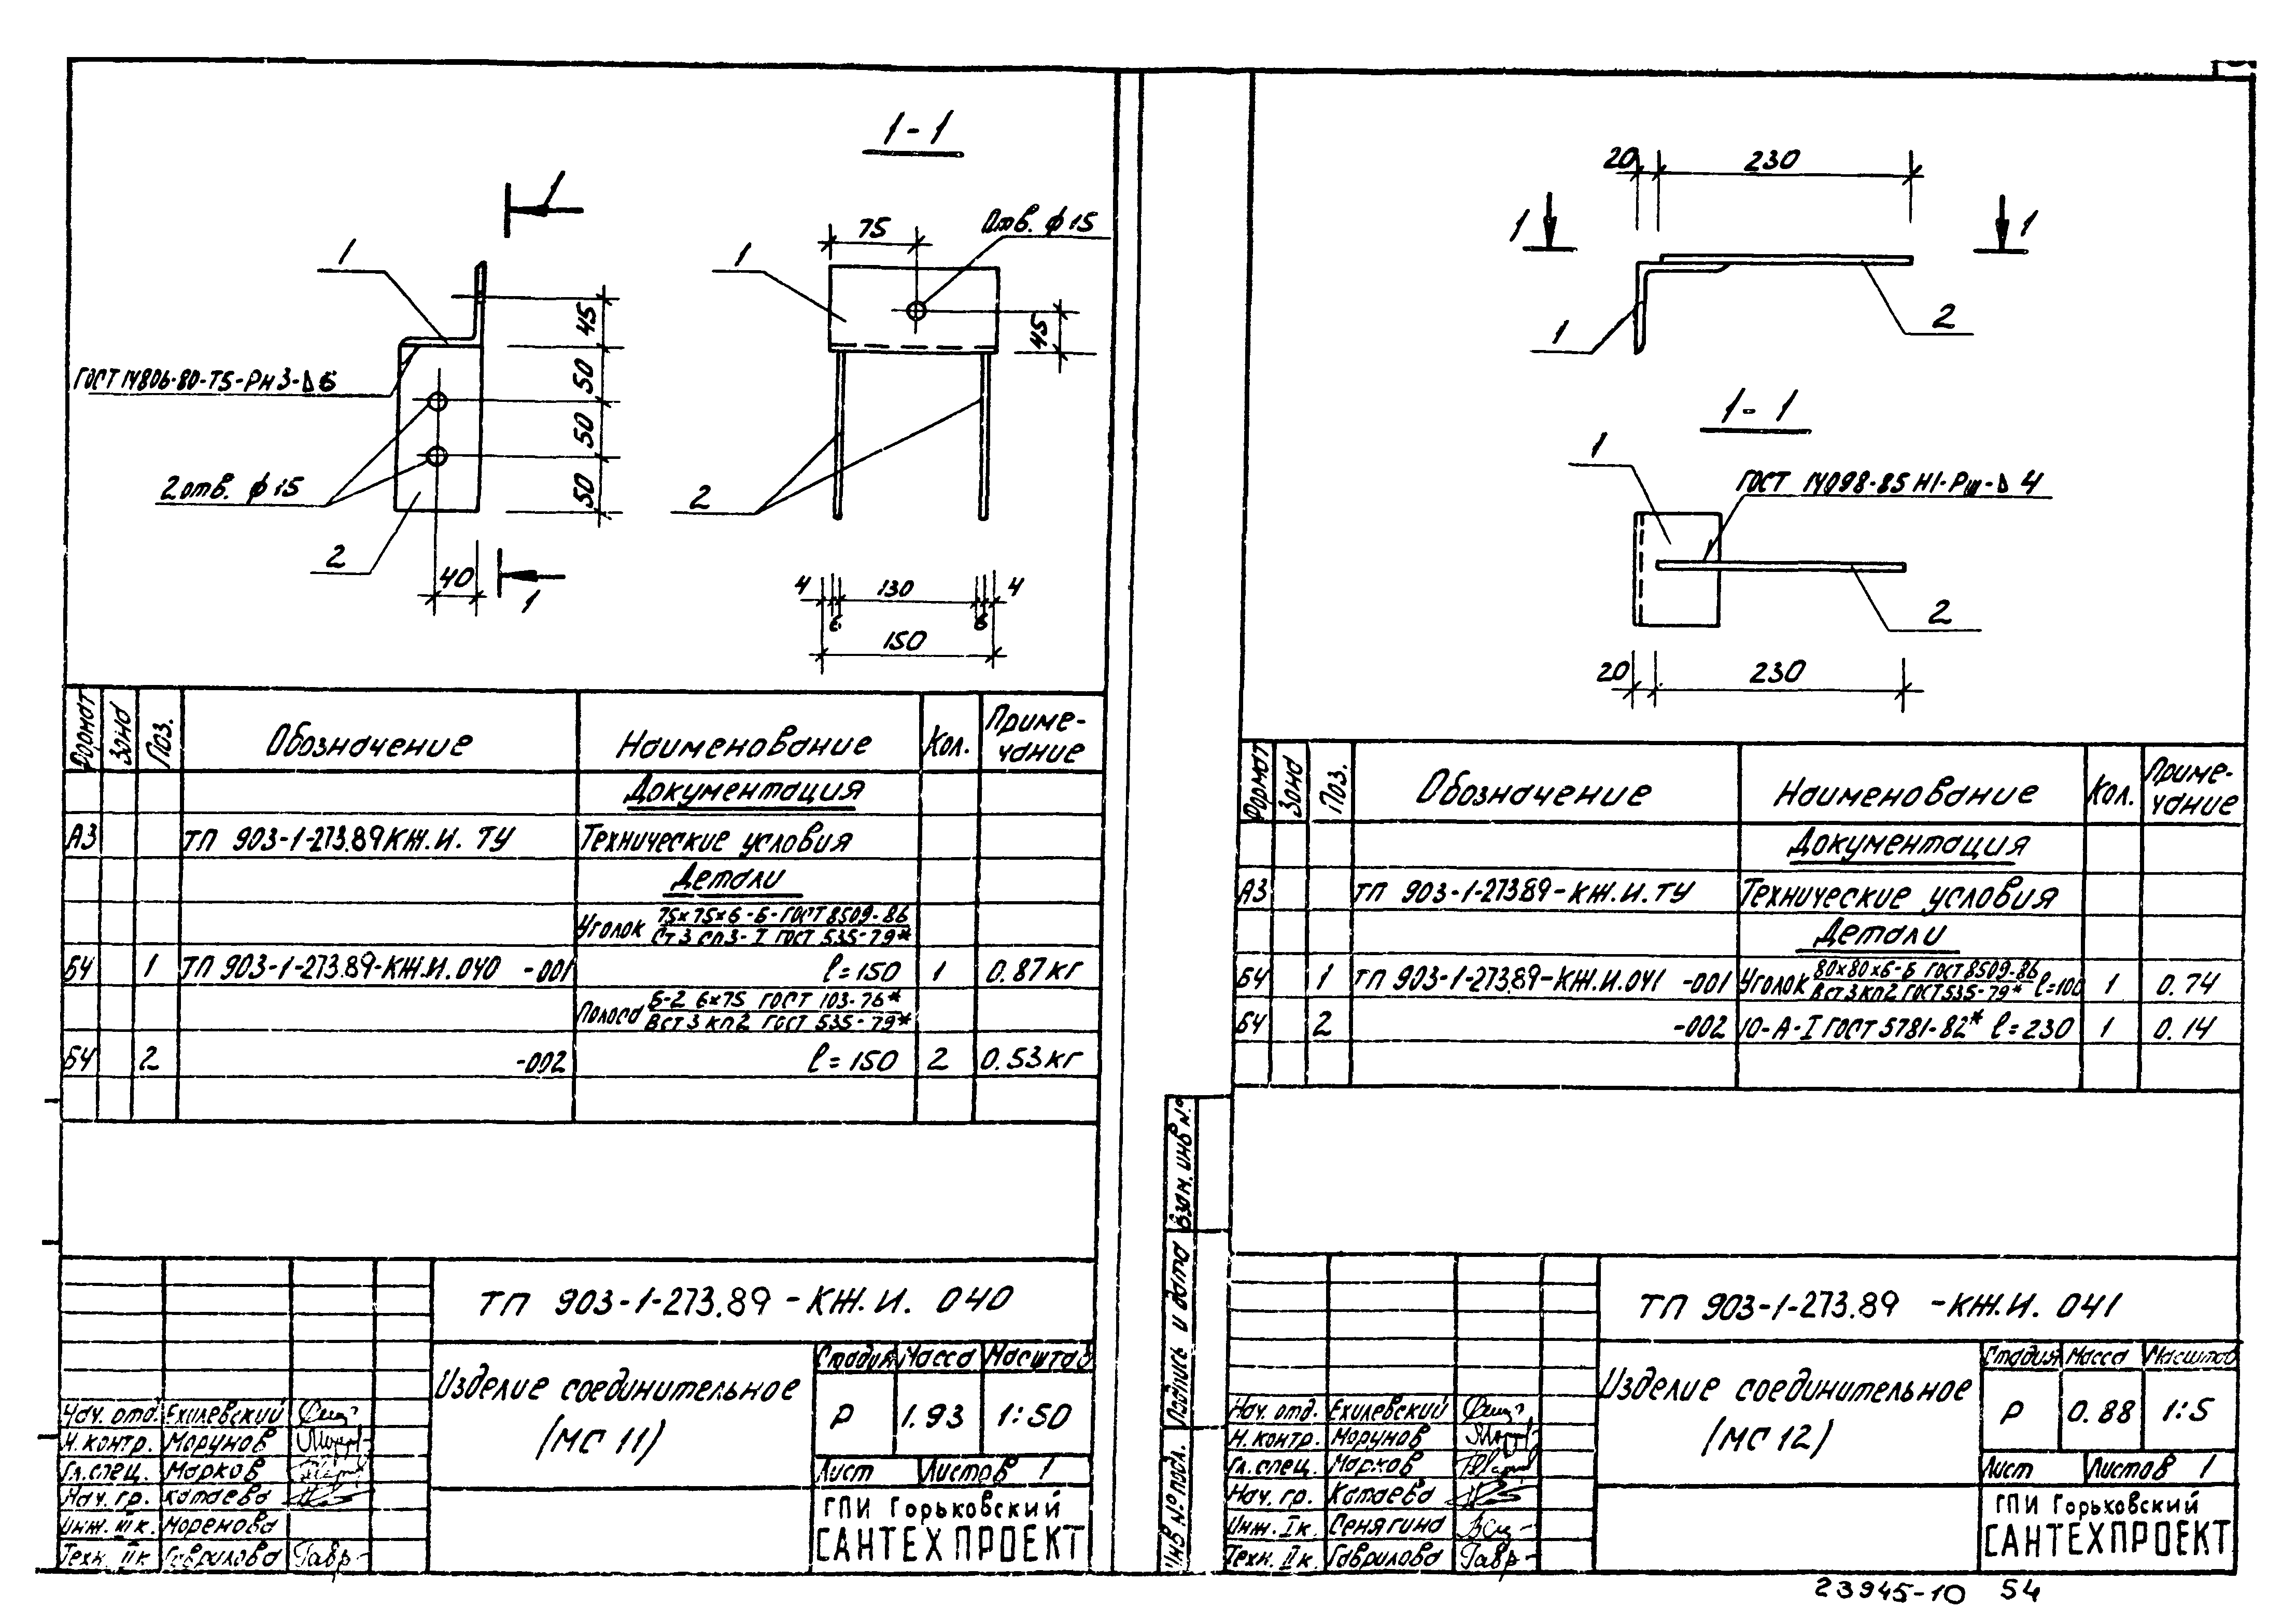 1-1
1
1
75
Отв. ф 15
1
45
50
50
50
45
ГОСТ 14806-80-Т5-РнЗ-△6
2 отв. ф 15
2
40
1
2
4
130
4
6
6
150
Формат
Зона
Поз.
Обозначение
Наименование
Кол.
Приме-
чание
Документация
А3
ТП 903-1-273.89 КЖ.И. ТУ
Технические условия
Детали
Уголок 75х75х6-Б-ГОСТ 8509-86
Ст 3 сп3-I ГОСТ 535-79*
Б4 1 ТП 903-1-273.89-КЖ.И.040 -001 ℓ=150 1 0.87кг
Полоса Б-2 6х75 ГОСТ 103-76*
Вст 3 кп2 ГОСТ 535-79*
Б4 2 -002 ℓ=150 2 0.53кг
ТП 903-1-273.89-КЖ.И. 040
Изделие соединительное
(МС 11)
Стадия Масса Масштаб
Р 1.93 1:50
Лист Листов 1
ГПИ Горьковский
САНТЕХПРОЕКТ
Нач. отд. Ехилевский
Н. контр. Морунов
Гл. спец. Марков
Нач. гр. Катаева
Инж. III к.
Техн. II к. Гаврилова Гавр-
20
230
1
1
1
2
1-1
1
ГОСТ 14098-85 Н1-Рш-△ 4
2
20
230
Формат
Зона
Поз.
Обозначение
Наименование
Кол.
Приме-
чание
Документация
А3 ТП 903-1-273.89-КЖ.И.ТУ Технические условия
Детали
Б4 1 ТП 903-1-273.89-КЖ.И.041 -001 Уголок 80х80х6-Б ГОСТ 8509-86
Вст 3 кп2 ГОСТ 535-79* ℓ=100 1 0.74
Б4 2 -002 10-А-I ГОСТ 5781-82* ℓ=230 1 0.14
Взам. инв №
Подпись и дата
Инв № подл.
ТП 903-1-273.89 -КЖ.И. 041
Изделие соединительное
(МС 12)
Стадия Масса Масштаб
Р 0.88 1:5
Лист Листов 1
ГПИ Горьковский
САНТЕХПРОЕКТ
Нач. отд. Ехилевский
Н. контр. Морунов
Гл. спец. Марков
Нач. гр. Катаева
Инж. I к. Сенягина
Техн. II к. Гаврилова Гавр-
23945-10 54